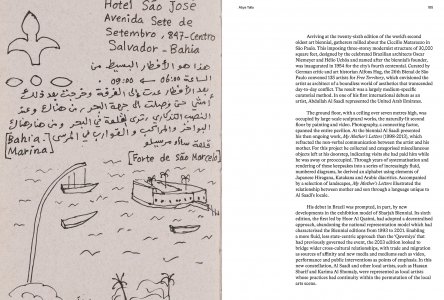 Hotel São José
Avenida Sete de
Setembro, 847-Centro
Salvador - Bahia
هذا الافطار البسيط من
الساعة 06:00 ← 09:00
بعد الافطار عدت إلى الغرفة وخرجت بعد ذلك
امشي حتى وصلت الى جهة البحر من هناك وعند
النصب التذكاري ترى في البحر ومن هناك
البواخر والمراكب والقوارب في المرسى [Bahia
Marina]
قلعة ساو مرسيلو
[Forte de São Marcelo]
Arriving at the twenty-sixth edition of the world's second
oldest art biennial, gatherers milled about the Ciccillo Matarazzo in
São Paulo. This imposing three-storey modernist structure of 30,000
square feet, designed by the celebrated Brazilian architects Oscar
Niemeyer and Hélio Uchôa and named after the biennial's founder,
was inaugurated in 1954 for the city's fourth centennial. Curated by
German critic and art historian Alfons Hug, the 26th Bienal de São
Paulo convened 135 artists for Free Territory, which envisioned the
artist as architect of a boundless world of aesthetics that surrounded
day-to-day conflict. The result was a largely medium-specific
curatorial method. In one of his first international debuts as an
artist, Abdullah Al Saadi represented the United Arab Emirates.
The ground floor, with a ceiling over seven metres high, was
occupied by large-scale sculptural works, the naturally lit second
floor by painting and video. Photography, a connecting datum,
spanned the entire pavilion. At the biennial Al Saadi presented
his then ongoing work, My Mother's Letters (1998-2013), which
refracted the non-verbal communication between the artist and his
mother. For this project he collected and categorised miscellaneous
objects left at his doorstep, indicating visits she had paid him while
he was away or preoccupied. Through years of systematisation and
rendering of these keepsakes into a series of increasingly fluid,
numbered diagrams, he derived an alphabet using elements of
Japanese Hiragana, Katakana and Arabic diacritics. Accompanied
by a selection of landscapes, My Mother's Letters illustrated the
relationship between mother and son through a language unique to
Al Saadi's locale.
His debut in Brazil was prompted, in part, by new
developments in the exhibition model of Sharjah Biennial. Its sixth
edition, the first led by Hoor Al Qasimi, had adopted a decentralised
approach, abandoning the national representation model which had
characterised the Biennial editions from 1993 to 2001. Enabling
a more fluid, less state-centric approach than the 'Qawmiya' that
had previously governed the event, the 2003 edition looked to
bridge wider cross-cultural relationships, with trade and migration
as sources of affinity and new media and mediums such as video,
performance and public interventions as points of emphasis. In this
new constellation, Al Saadi and other local artists, such as Hassan
Sharif and Karima Al Shomaly, were represented as local artists
whose practices had continuity within the permutation of the local
arts scene.